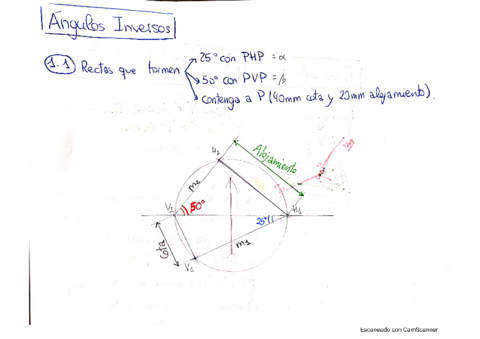 Ángulos Inversos
1.1 Rectas que formen
25° con PHP = α
50° con PVP = β
contenga a P (40mm cota y 20mm alojamiento).
Alojamiento
m2
V2
50°
25°
H1
m1
Cota
V1
Escaneado con CamScanner